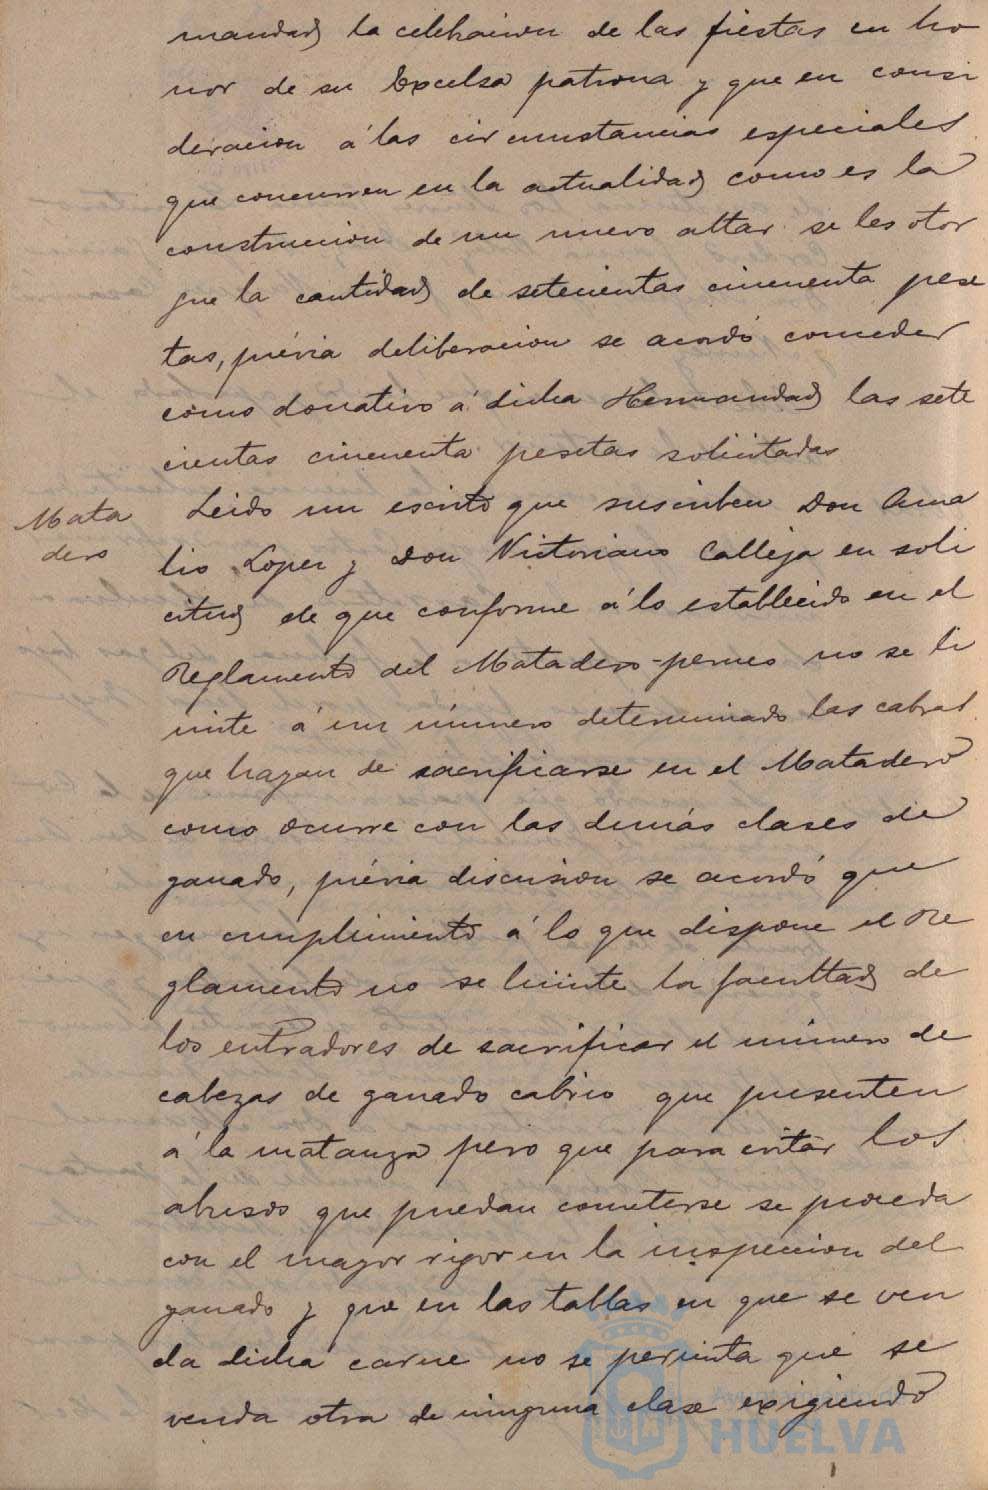 mandad la celebracion de las fiestas en ho
nor de su Excelsa patrona y que en consi
deracion á las circunstancias especiales
que concurren en la actualidad como es la
construccion de un nuevo altar se les otor
gue la cantidad de setecientas cincuenta pese
tas, prévia deliberacion se acordó conceder
como donativo á dicha Hermandad las sete
cientas cincuenta pesetas solicitadas
Mata
dero
Leido un escrito que suscriben Don Ama
lio Lopez y Don Victoriano Calleja en soli
citud de que conforme á lo establecido en el
Reglamento del Matadero-permes no se li
mite á un número determinado las cabras
que hayan de sacrificarse en el Matadero
como ocurre con las demás clases de
ganado, prévia discusion se acordó que
en cumplimiento á lo que dispone el Re
glamento no se limite la facultad de
los entradores de sacrificar el número de
cabezas de ganado cabrio que presenten
á la matanza pero que para evitar los
abusos que puedan cometerse se proceda
con el mayor rigor en la inspeccion del
ganado y que en las tablas en que se ven
da dicha carne no se permita que se
venda otra de ninguna clase exigiendo
Ayuntamiento de
HUELVA